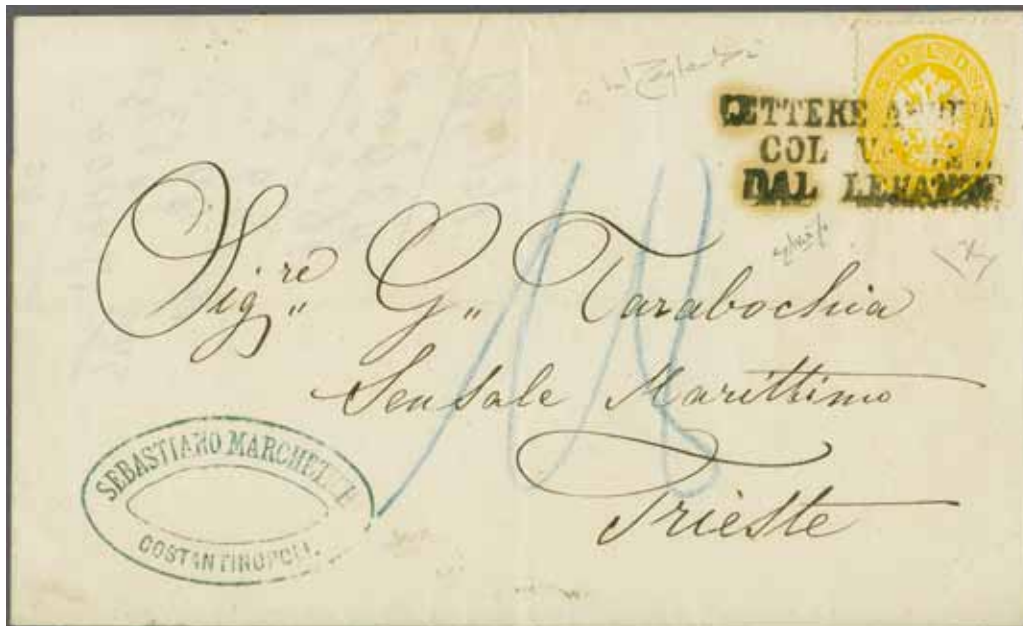 LETTERE ARRIVATE
COL VAPORE
DAL LEVANTE
SOLDI
Sig.re G. Tarabochia
Sensale Marittimo
Trieste
SEBASTIANO MARCHETICH
COSTANTINOPOLI.